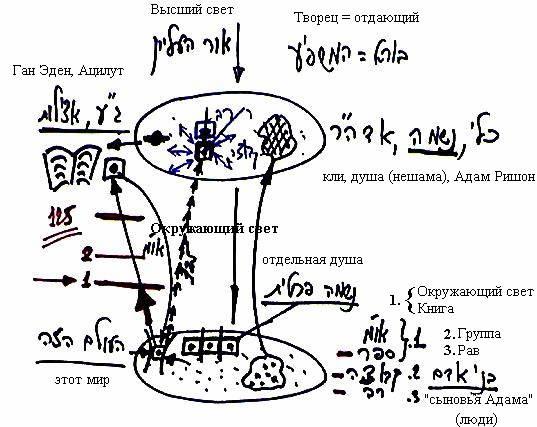 Высший свет
Творец = отдающий
אור העליון
בורא = המשפיע
Ган Эден, Ацилут
ג"ע, אצילות
רב
קבוצה
כלי, נשמה, אדה"ר
кли, душа (нешама), Адам Ришон
125
Окружающий свет
או"מ
2
1
отдельная душа
נשמה פרטית
1. { Окружающий свет
Книга
2. Группа
3. Рав
העולם הזה
этот мир
או"מ } .1
ספר
קבוצה .2
רב .3
בני אדם
"сыновья Адама"
(люди)